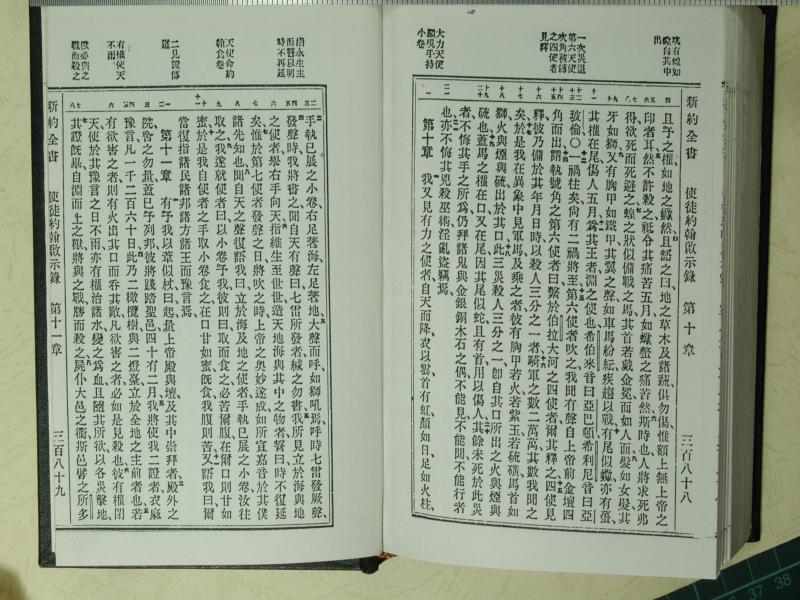 新約全書 使徒約翰啟示錄 第十章 三百八十八
坑有蝗如
一次災退
第六天使
吹角被縛
之四使者
見釋
大力天使
顯現手持
小卷
且予之權如地之蠍然且語之曰地之草木及諸蔬俱勿傷惟額上無上帝之
印者耳然不許殺之祗令其痛苦五月如蠍螫之痛苦然斯時也人將求死弗
得欲死而死避之蝗之狀似備戰之馬其首若戴金冕而如人面髮如女髮其
牙如獅又有胸甲如鐵甲其翼之聲如車馬紛紜疾趨以戰有尾似蠍亦有螫
其權在尾傷人五月為其王者淵之使也希伯來音曰亞巴頓希利尼音曰亞
玻倫〇一禍往矣尚有二禍將至第六使者吹之我聞有聲自上帝前金壇四
角而出謂執號角之第六使者曰繫於伯拉大河之四使者爾其釋之四使見
釋彼乃備於其年月日時以殺人三分之一者騎軍之數二萬萬其數我聞之
矣於是我在異象中見軍馬及乘之者彼有胸甲若火若紫玉若硫磺馬首如
獅火與煙與硫出於其口此三災殺人三分之一即自其口所出之火與煙與
硫也蓋馬之權在口又在尾因其尾似蛇且有首用以傷人其餘未死於此災
者不悔其手之所為仍拜諸鬼與金銀銅木石之偶不能見不能聞不能行者
也亦不悔其兇殺巫術淫亂盜竊焉
第十章 我又見有力之使者自天而降衣以雲首有虹顏如日足如火柱
指永生主
而誓以明
時不再延
天使命約
翰食卷
二見證傳
道
有權使天
不雨
獸必與之
戰而殺之
手執已展之小卷右足著海左足著地大聲而呼如獅吼焉呼時七雷發厥聲
發聲時我將書之聞自天有聲曰七雷所發者緘之勿書我所見立於海與地
之使者舉右手向天指維生至世世造天地海與其中之物者誓曰時不復延
矣惟於第七使者發聲之日將吹之時上帝之奧妙遂成如所宣嘉音於其僕
諸先知也聞自天之聲復語我曰立於海及地之使者手執已展之小卷汝往
取之我遂就使者曰以小卷予我彼則曰取而食之必苦爾腹在爾口則甘如
蜜於是我自使者之手取小卷食之在口甘如蜜既食我腹則苦又語我曰爾
當復指諸民諸邦諸方諸王而豫言焉
第十一章 有予我以葦似杖曰起量上帝殿與壇及其中崇拜者殿外之
院舍之勿量蓋已予列邦彼將踐踏聖邑四十有二月我將使我二證者衣麻
豫言凡一千二百六十日此乃二橄欖樹與二燈臺立於全地之主前者也若
有欲害之者則有火出其口而吞其敵凡欲害之者必如是見殺也彼有權閉
天使於其豫言之日不雨亦有權治諸水變之為血且隨其所欲以各災擊地
其證既畢自淵而上之獸將與之戰勝而殺之屍仆大邑之衢斯邑譬之所多
新約全書 使徒約翰啟示錄 第十一章 三百八十九
37
38